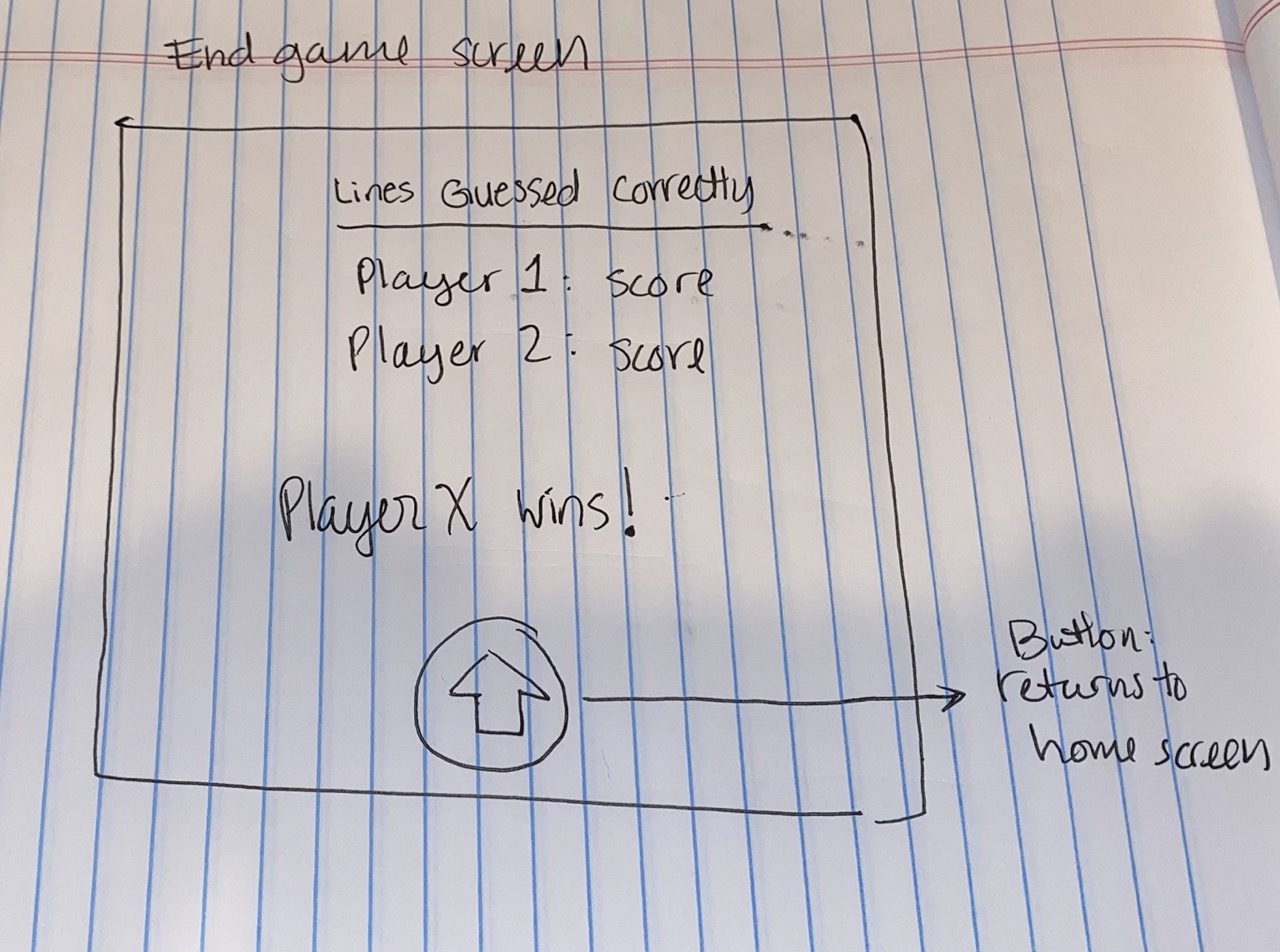 End game screen
Lines Guessed Correctly
Player 1: score
Player 2: score
Player X wins!
Button:
returns to
home screen